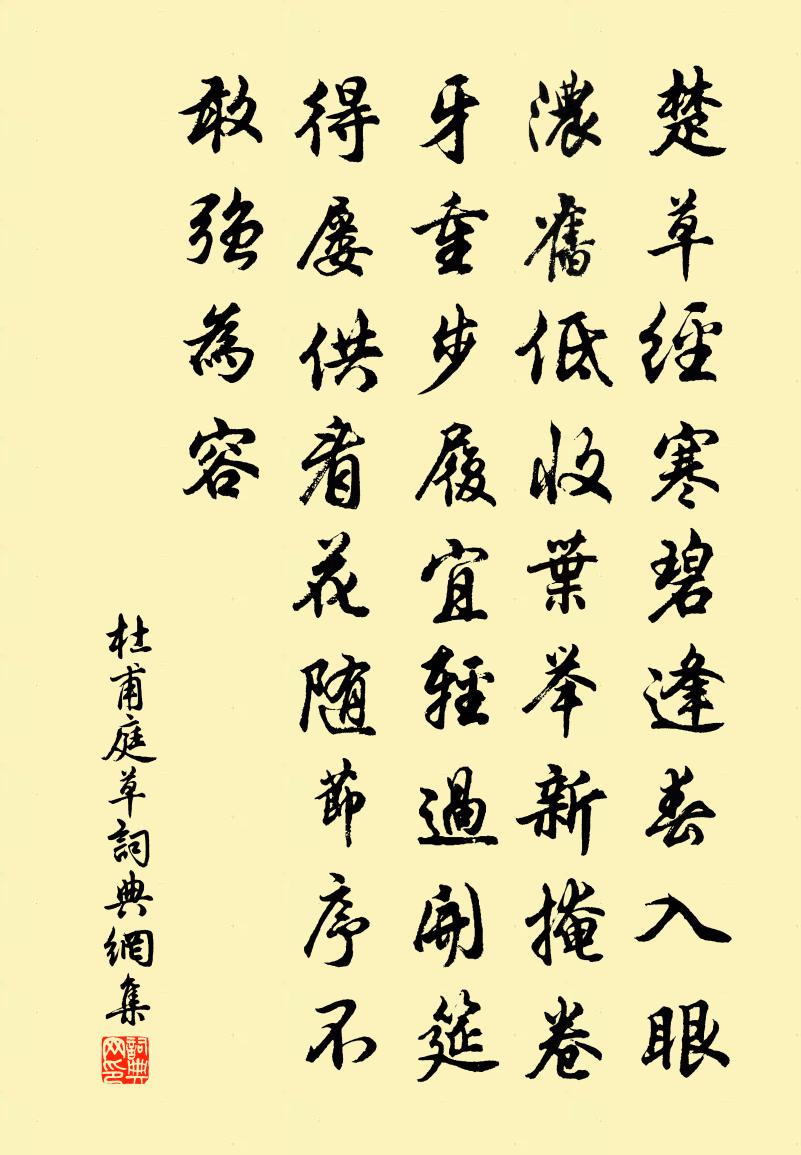 楚草經寒碧逢春入眼
濃舊低收葉舉新掩卷
牙重步履宜輕過開筵
得屡供看花隨節序不
敢強為容
杜甫庭草詞典網集
詞典网印